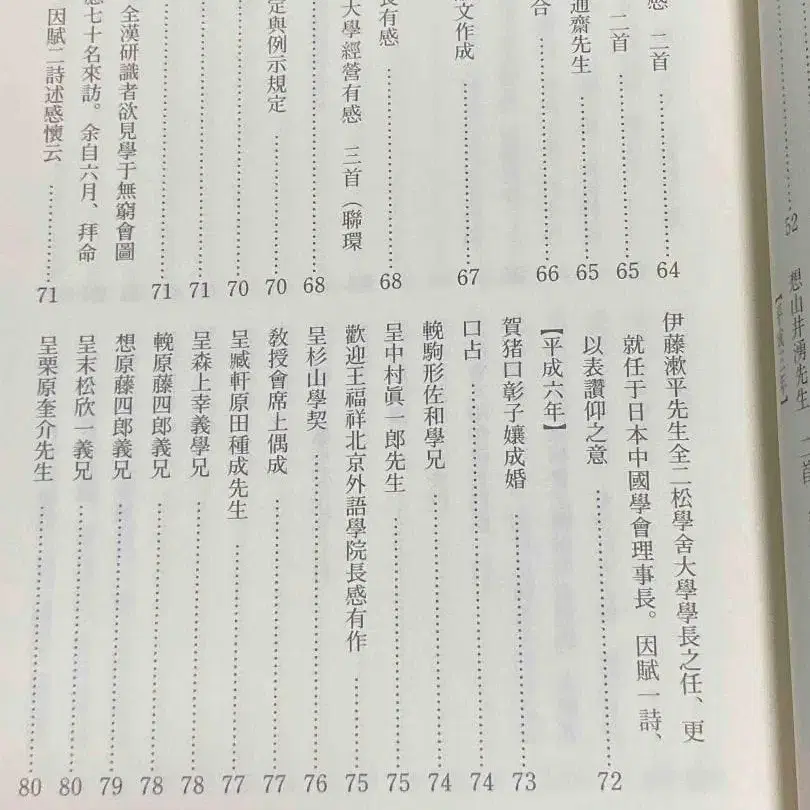 52
想山井湧先生 二首
感 二首 64
二首 65
通齋先生 65
合 66
文作成 67
長有感 68
大學經營有感 三首（聯環 68
定與例示規定 70
70
71
71
全漢研識者欲見學于無窮會圖
七十名來訪。余自六月、拜命
因賦二詩述感懷云 71
伊藤漱平先生全二松學舍大學學長之任、更
就任于日本中國學會理事長。因賦一詩、
以表讚仰之意 72
【平成六年】
賀猪口彰子孃成婚 73
口占 74
輓駒形佐和學兄 74
呈中村眞一郎先生 75
歡迎王福祥北京外語學院長感有作 75
呈杉山學契 76
敎授會席上偶成 77
呈臧軒原田種成先生 77
呈森上幸義學兄 78
輓原藤四郎義兄 78
想原藤四郎義兄 79
呈末松欣一義兄 80
呈栗原奎介先生 80